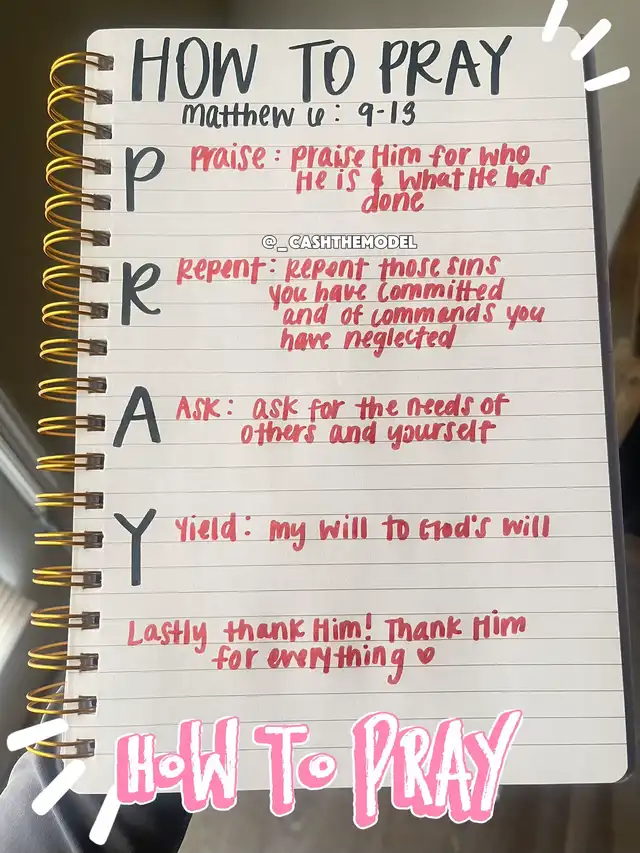 HOW TO PRAY
Matthew 6: 9-13
P Praise: Praise Him for who
He is & what He has
done
@_CASHTHEMODEL
R Repent: Repent those sins
you have committed
and of commands you
have neglected
A Ask: ask for the needs of
others and yourself
Y Yield: my will to God's will
Lastly thank Him! Thank Him
for everything ♡
HOW TO PRAY